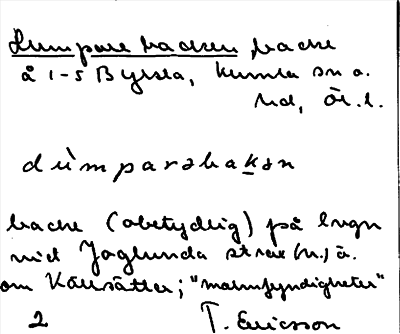 Lumparebacken, backe
å 1-5 Byrsta, Kumla sn o.
hd, Ör. l.
dùmparabakən
backe (obetydlig) på Ingn
vid Joglunda strax (n.) ä.
om Källsätter; "malmfyndigheter"
2 T. Ericsson